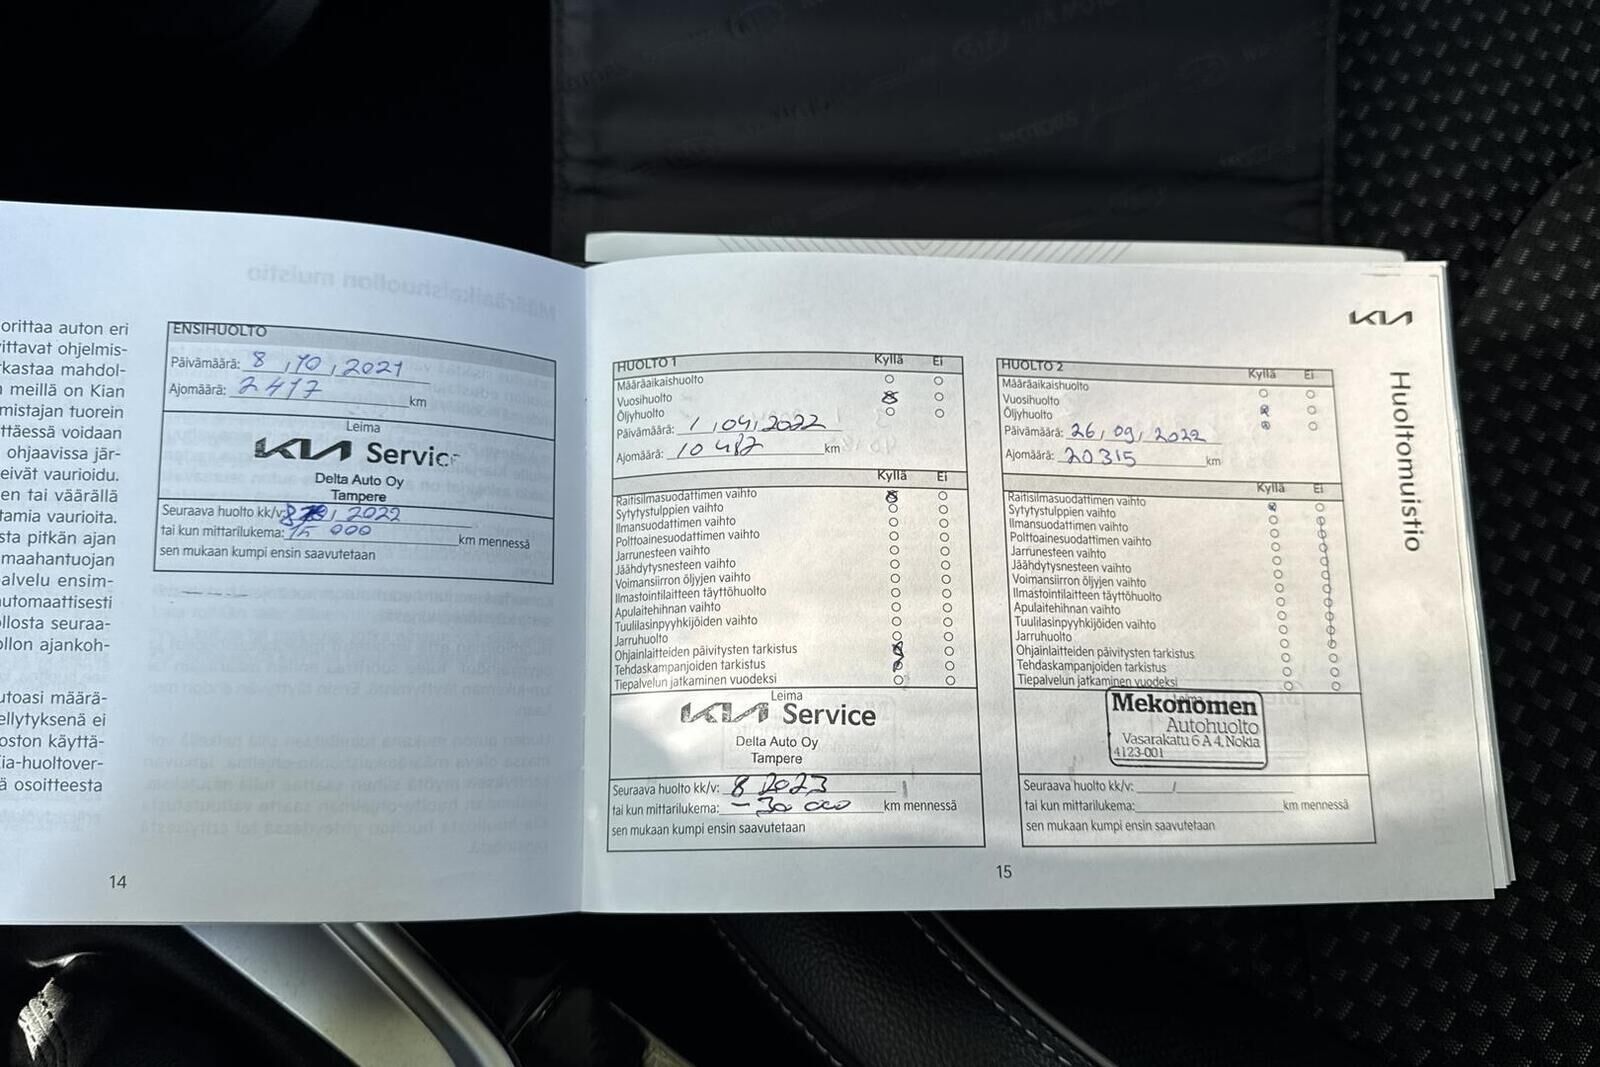 orittaa auton eri
vittavat ohjelmis-
rkastaa mahdol-
n meillä on Kian
mistajan tuorein
ttäessä voidaan
ohjaavissa jär-
eivät vaurioidu.
en tai väärällä
tamia vaurioita.
sta pitkän ajan
maahantuojan
alvelu ensim-
automaattisesti
ollosta seuraa-
ollon ajankoh-
utoasi määrä-
ellytyksenä ei
oston käyttä-
Kia-huoltover-
ä osoitteesta
14
ENSIHUOLTO
Päivämäärä: 8 , 10 , 2021
Ajomäärä: 2417 km
Leima
KIA Service
Delta Auto Oy
Tampere
Seuraava huolto kk/v: 2022
tai kun mittarilukema: 15 000 km mennessä
sen mukaan kumpi ensin saavutetaan
KIA
Huoltomuistio
HUOLTO 1 Kyllä Ei
Määräaikaishuolto
Vuosihuolto
Öljyhuolto
Päivämäärä: 1 , 04 , 2022
Ajomäärä: 10 487 km
Kyllä Ei
Raitisilmasuodattimen vaihto
Sytytystulppien vaihto
Ilmansuodattimen vaihto
Polttoainesuodattimen vaihto
Jarrunesteen vaihto
Jäähdytysnesteen vaihto
Voimansiirron öljyjen vaihto
Ilmastointilaitteen täyttöhuolto
Apulaitehihnan vaihto
Tuulilasinpyyhkijöiden vaihto
Jarruhuolto
Ohjainlaitteiden päivitysten tarkistus
Tehdaskampanjoiden tarkistus
Tiepalvelun jatkaminen vuodeksi
Leima
KIA Service
Delta Auto Oy
Tampere
Seuraava huolto kk/v: 8 2023
tai kun mittarilukema: - 30 000 km mennessä
sen mukaan kumpi ensin saavutetaan
HUOLTO 2 Kyllä Ei
Määräaikaishuolto
Vuosihuolto
Öljyhuolto
Päivämäärä: 26 , 09 , 2022
Ajomäärä: 20315 km
Kyllä Ei
Raitisilmasuodattimen vaihto
Sytytystulppien vaihto
Ilmansuodattimen vaihto
Polttoainesuodattimen vaihto
Jarrunesteen vaihto
Jäähdytysnesteen vaihto
Voimansiirron öljyjen vaihto
Ilmastointilaitteen täyttöhuolto
Apulaitehihnan vaihto
Tuulilasinpyyhkijöiden vaihto
Jarruhuolto
Ohjainlaitteiden päivitysten tarkistus
Tehdaskampanjoiden tarkistus
Tiepalvelun jatkaminen vuodeksi
Leima
Mekonomen
Autohuolto
Vasarakatu 6 A 4, Nokia
4123-001
Seuraava huolto kk/v: /
tai kun mittarilukema: km mennessä
sen mukaan kumpi ensin saavutetaan
15